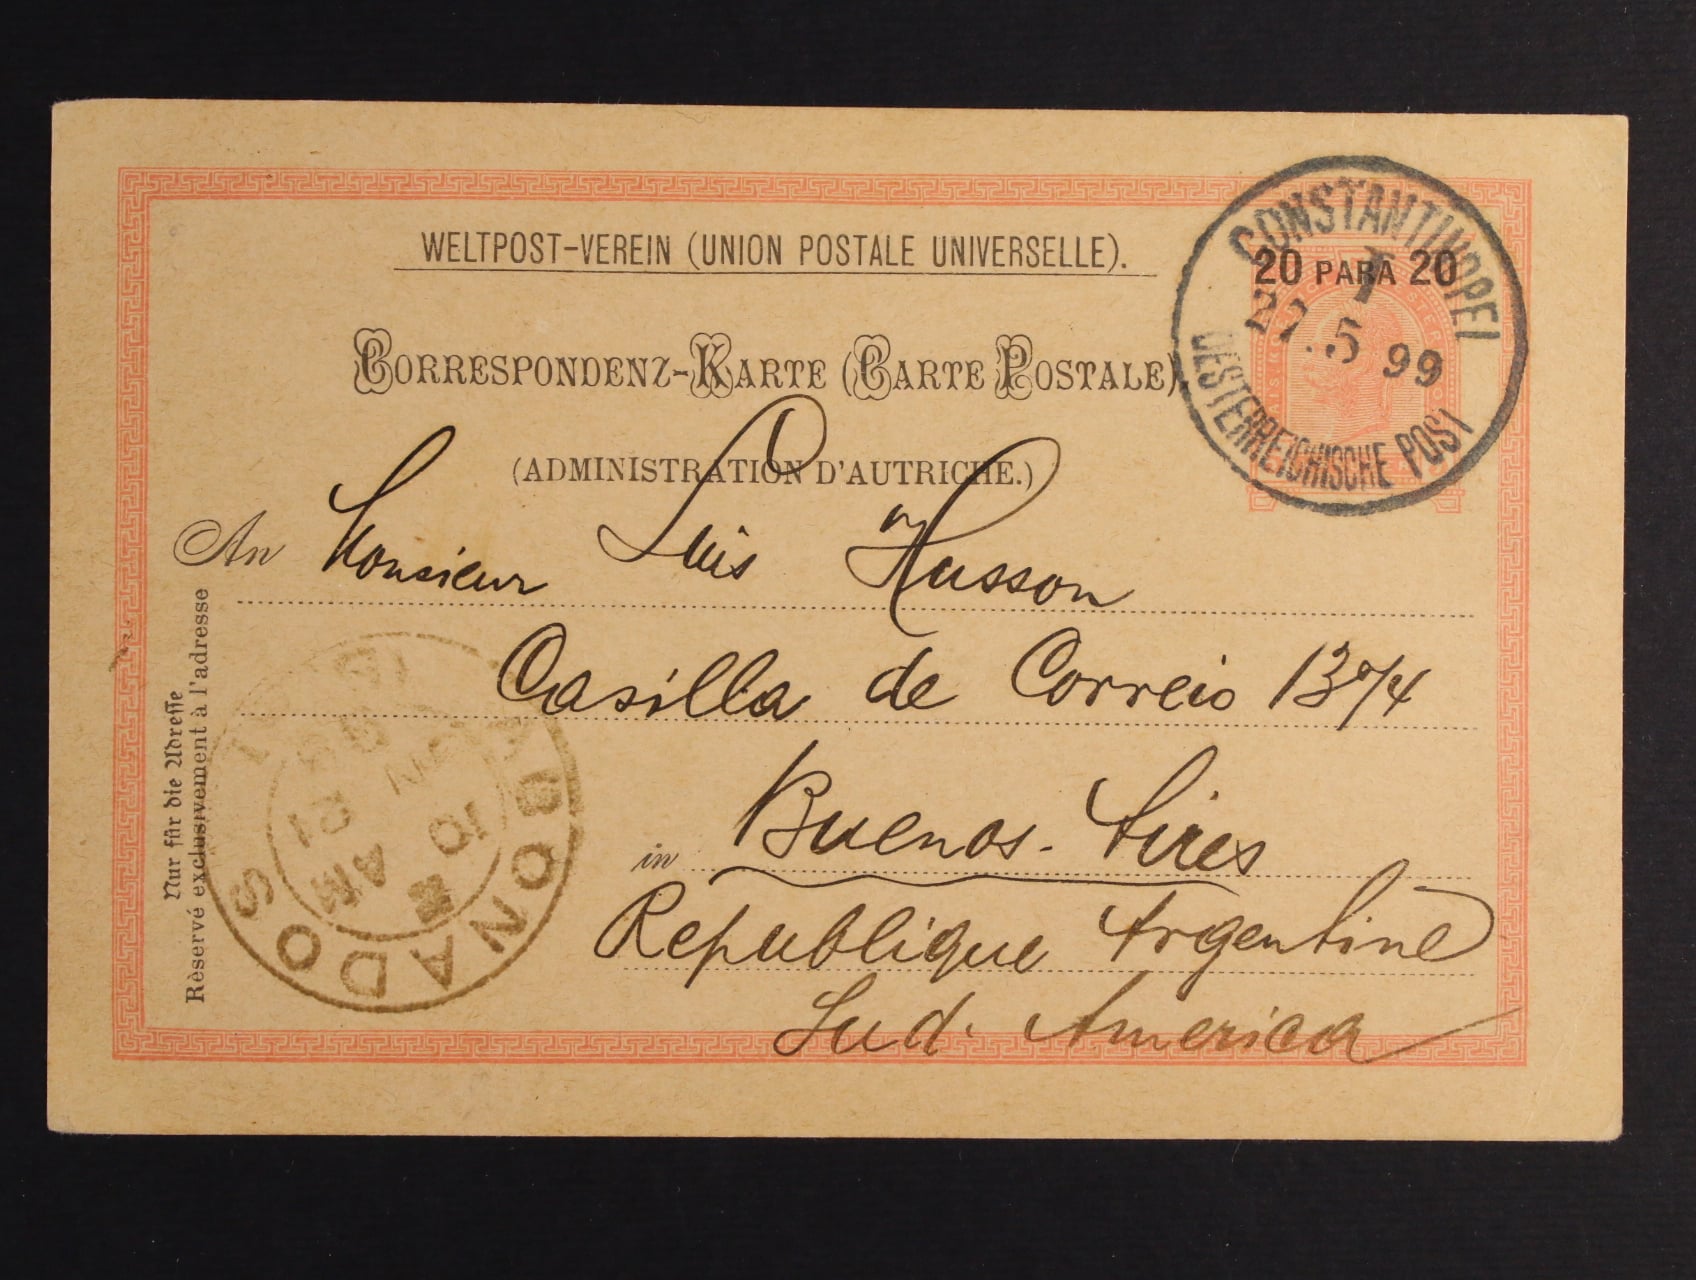 WELTPOST-VEREIN (UNION POSTALE UNIVERSELLE).
CORRESPONDENZ-KARTE (CARTE POSTALE)
(ADMINISTRATION D'AUTRICHE.)
20 PARA 20
CONSTANTINOPEL
I
27.5 99
OESTERREICHISCHE POST
An Monsieur Luis Husson
Casilla de Correio
in Buenos-Aires
Republique Argentine
Sud. America
Nur für die Adresse
Réservé exclusivement à l'adresse
ABONADOS
10
AM
21
99